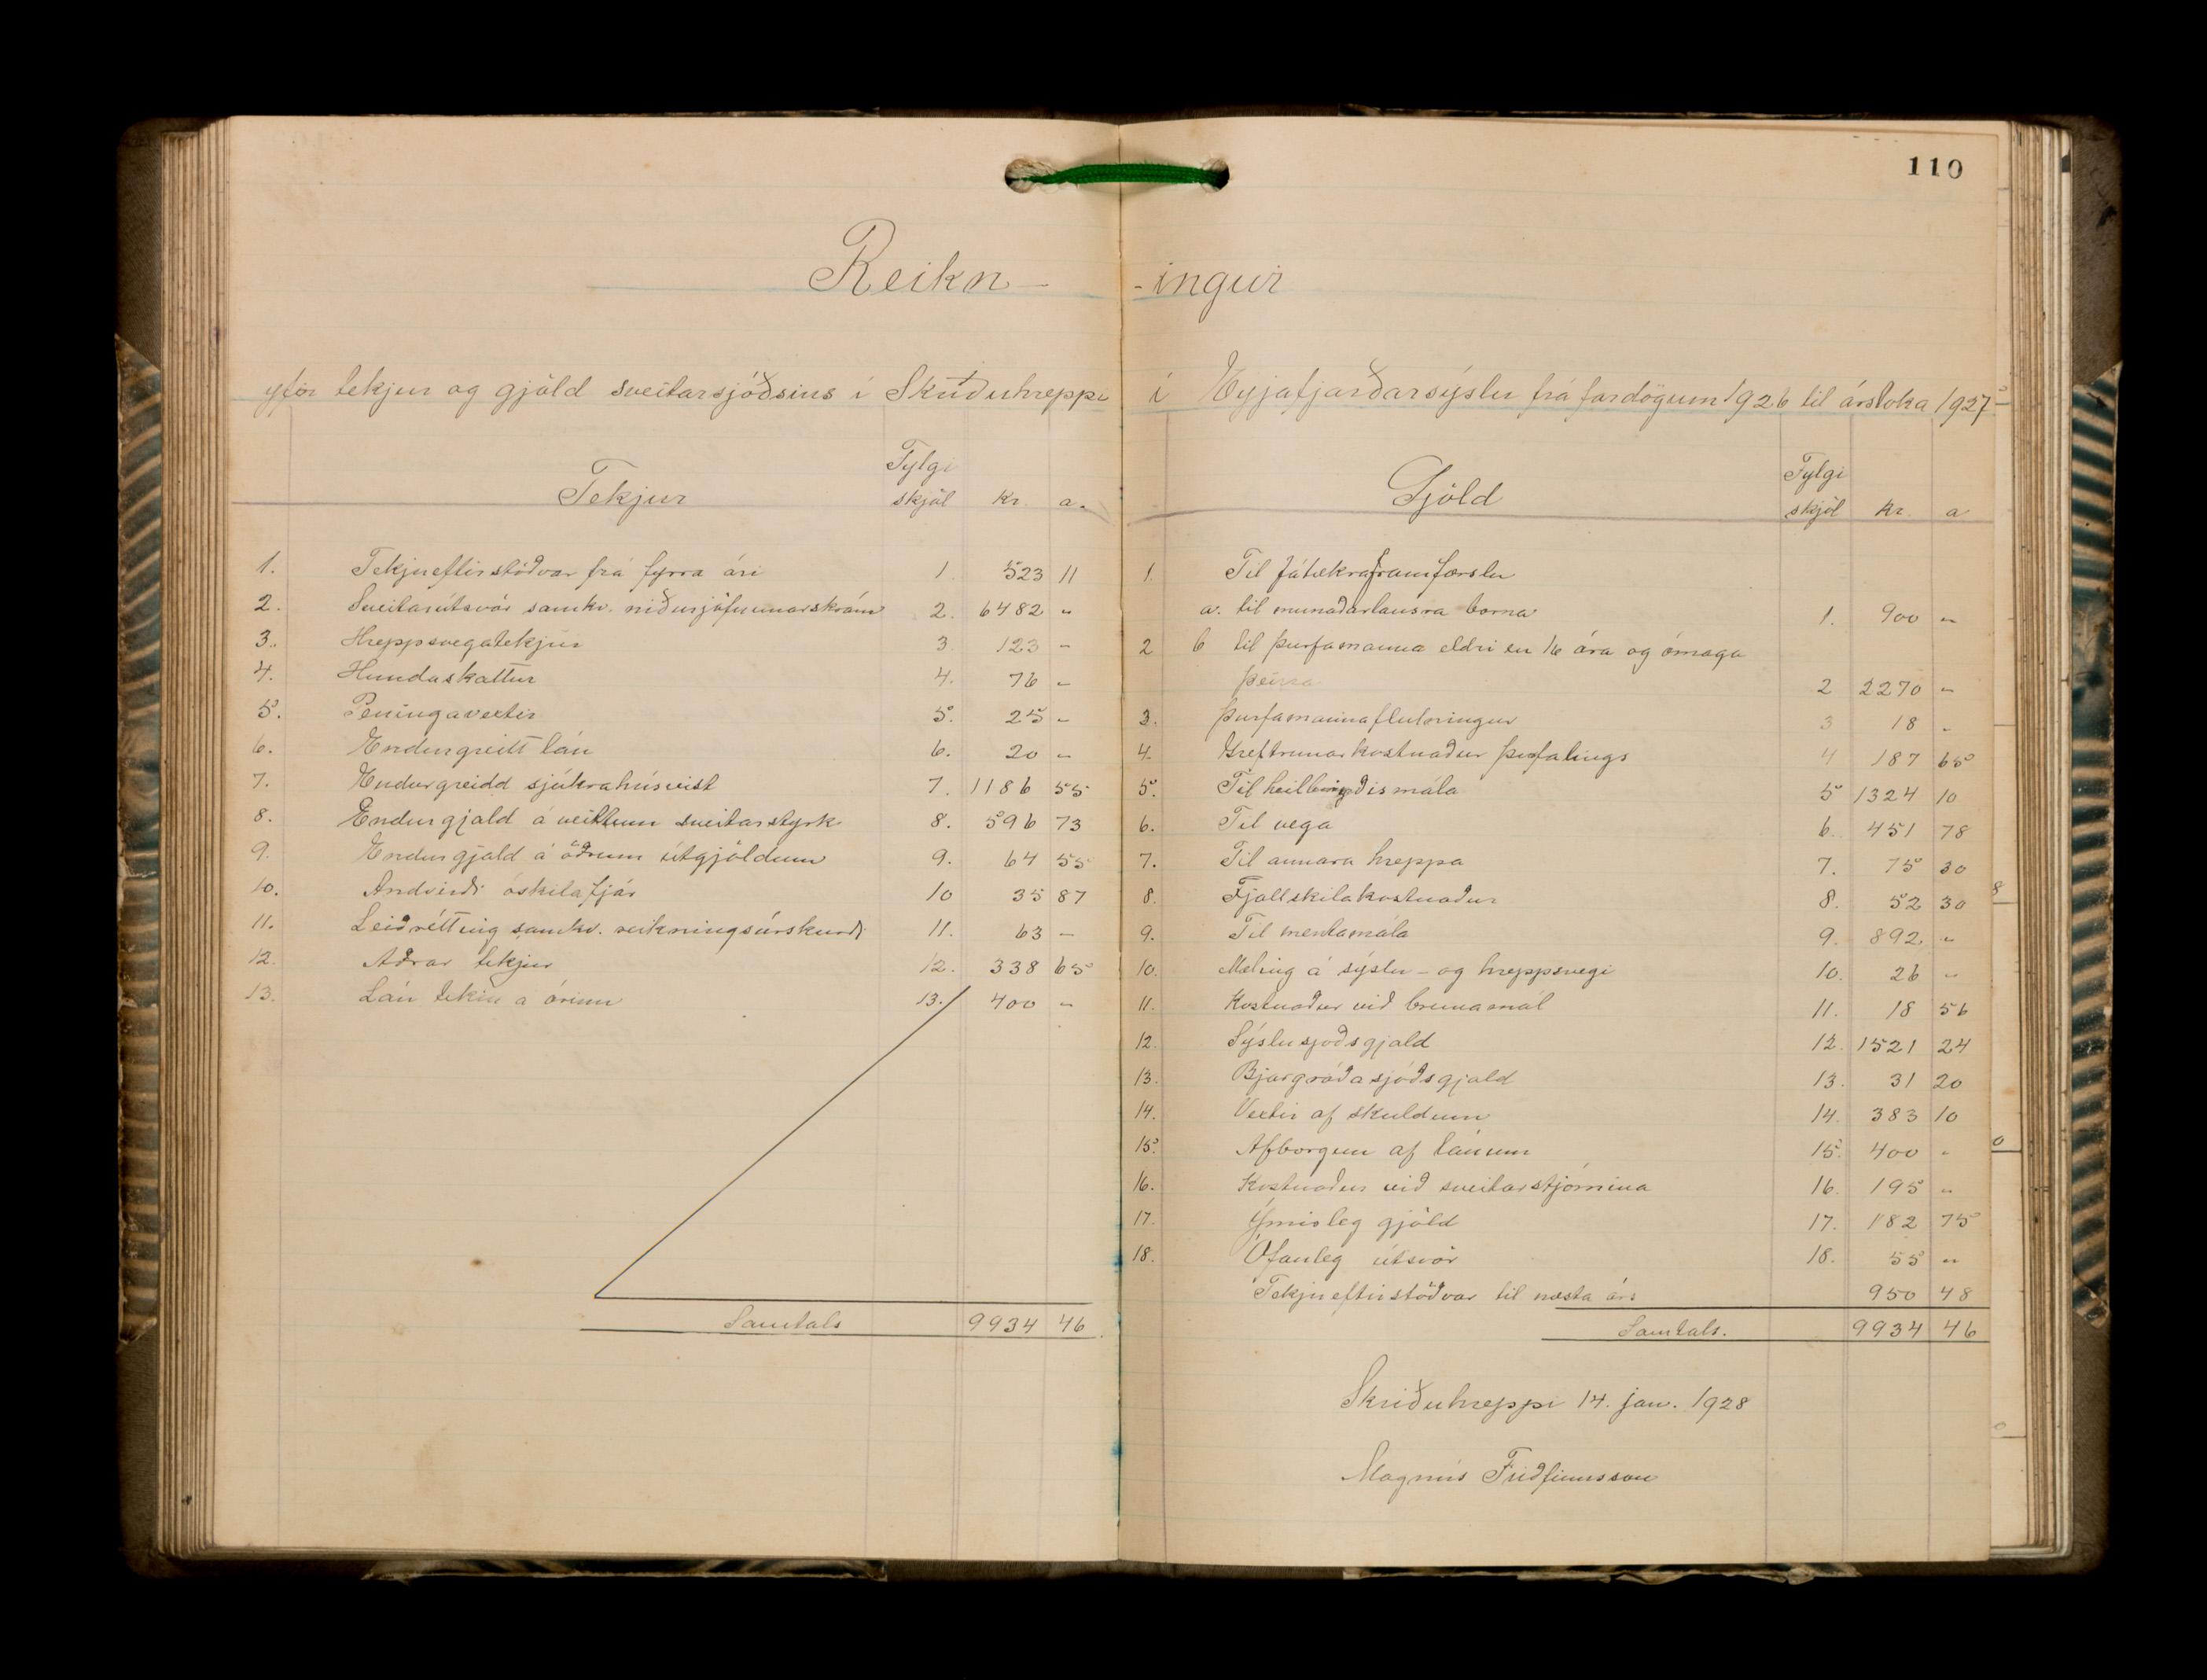 110
Reikn - - ingur
yfir tekjur og gjöld sveitarsjóðsins í Skriðuhreppi í Eyjafjarðarsýslu frá fardögum 1926 til ársloka 1927
Tekjur Fylgi skjöl kr. a.
1. Tekjueftirstöðvar frá fyrra ári 1. 523 11
2. Sveitarútsvör samkv. niðurjöfnunarskrám 2. 6482 "
3. Hreppsvegatekjur 3. 123 -
4. Hundaskattur 4. 76 -
5. Peningavextir 5. 25 -
6. Endurgreitt lán 6. 20 -
7. Endurgreidd sjúkrahúsvist 7. 1186 55
8. Endurgjald á veittum sveitarstyrk 8. 596 73
9. Endurgjald á öðrum útgjöldum 9. 64 55
10. Andvirði óskilafjár 10 35 87
11. Leiðrétting samkv. reikningsúrskurði 11. 63 -
12. Aðrar tekjur 12. 338 65
13. Lán tekin a árinu 13. 400 -
Samtals 9934 46
Gjöld Fylgi skjöl kr. a
1. Til fátækraframfærslu
a. til munaðarlausra barna 1. 900 "
2 b til þurfamanna eldri en 16 ára og ómaga
þeirra 2 2270 "
3. Þurfamannaflutningur 3 18 "
4. Greftrunarkostnaður þurfalings 4 187 65
5. Til heilbrigðismála 5 1324 10
6. Til vega 6. 451 78
7. Til annara hreppa 7. 75 30
8. Fjallskilakostnaður 8. 52 30
9. Til mentamála 9. 892 "
10. Mæling á sýslu - og hreppsvegi 10. 26 "
11. Kostnaður við brunamál 11. 18 56
12. Sýslusjoðsgjald 12. 1521 24
13. Bjargráðasjóðsgjald 13. 31 20
14. Vextir af skuldum 14. 383 10
15. Afborgun af lánum 15. 400 "
16. Kostnaður við sveitarstjórnina 16. 195 "
17. Ýmisleg gjöld 17. 182 75
18. Ófanleg útsvör 18. 55 "
Tekjueftirstöðvar til næsta árs 950 48
Samtals. 9934 46
Skriðuhreppi 14. jan. 1928
Magnús Friðfinnsson